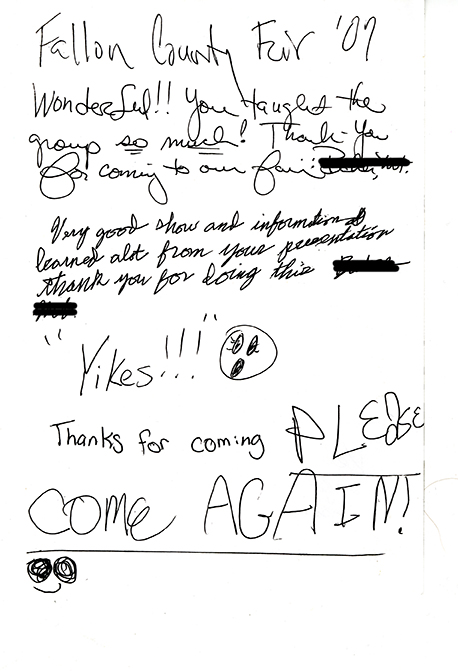 Fallon County Fair '07
Wonderful!! You taught the
group so much! Thank-You
for coming to our fair!
Very good show and information
learned alot from your presentation
thank you for doing this
"Yikes!!!"
Thanks for coming PLEASE
COME AGAIN!